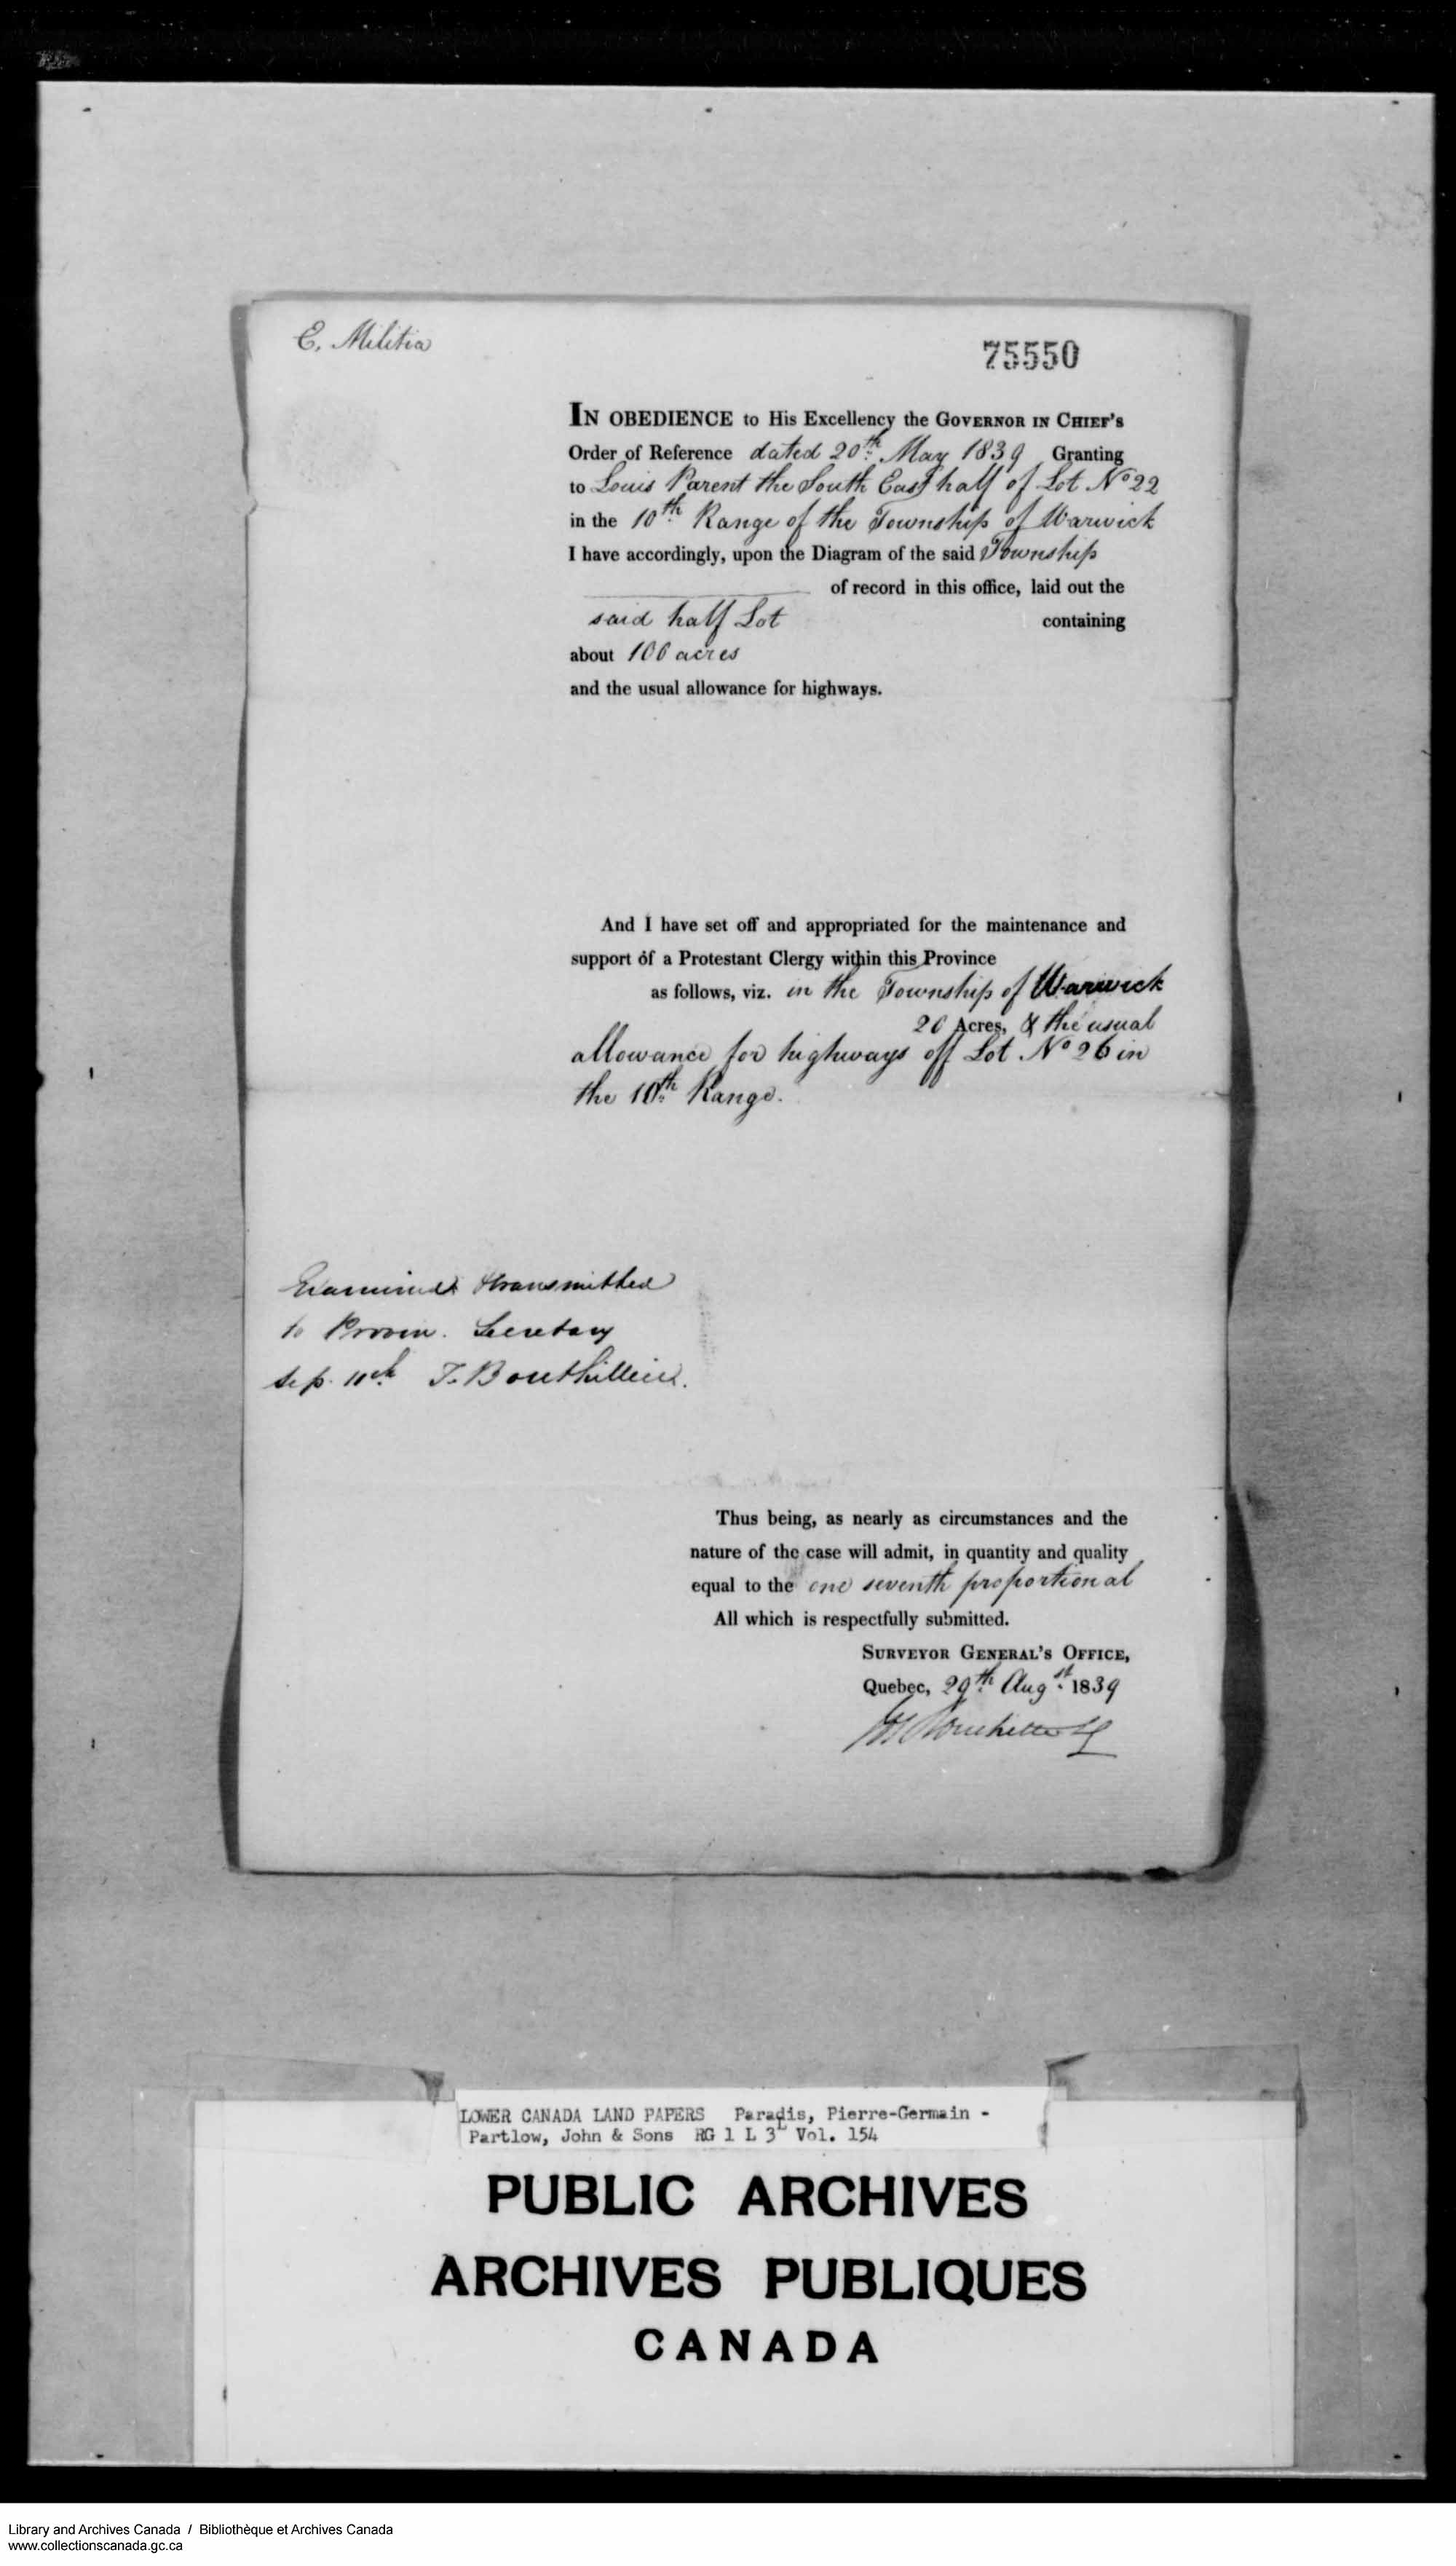 E. Militia
75550
IN OBEDIENCE to His Excellency the GOVERNOR IN CHIEF'S
Order of Reference dated 20th May 1839 Granting
to Louis Parent the South East half of Lot No 22
in the 10th Range of the Township of Warwick
I have accordingly, upon the Diagram of the said Township
of record in this office, laid out the
said half Lot containing
about 100 acres
and the usual allowance for highways.
And I have set off and appropriated for the maintenance and
support of a Protestant Clergy within this Province
as follows, viz. in the Township of Warwick
20 Acres, & the usual
allowance for highways off Lot No 26 in
the 10th Range.
Examined & transmitted
to Provin. Secretary
Sep. 11th T. Bouthillier.
Thus being, as nearly as circumstances and the
nature of the case will admit, in quantity and quality
equal to the one seventh proportional
All which is respectfully submitted.
SURVEYOR GENERAL'S OFFICE,
Quebec, 29th Augst 1839
Bouchette
LOWER CANADA LAND PAPERS Paradis, Pierre-Germain -
Partlow, John & Sons RG 1 L 3L Vol. 154
PUBLIC ARCHIVES
ARCHIVES PUBLIQUES
CANADA
Library and Archives Canada / Bibliothèque et Archives Canada
www.collectionscanada.gc.ca